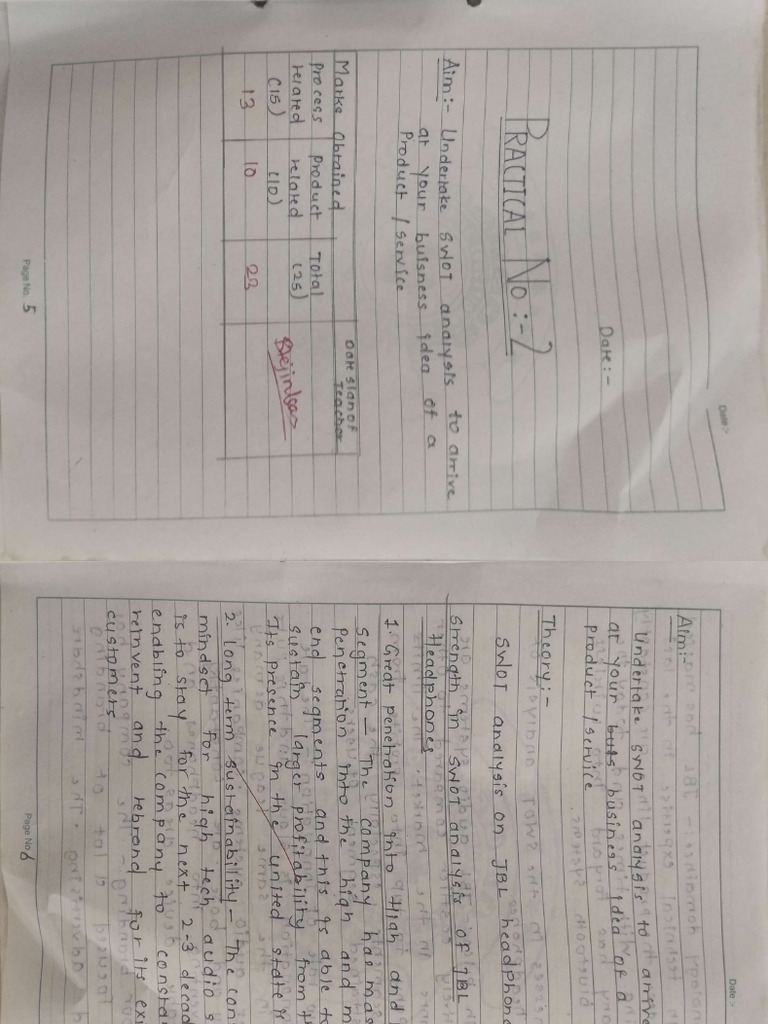 Date :-
Date :-
PRACTICAL No :- 2
Aim :- Undertake SWOT analysis to arrive
at your buisness idea of a
Product / service
Marks Obtained
Date sian of
Teacher
Process
related
(15)
Product
related
(10)
Total
(25)
13
10
23
Page No. 5
Date :-
Aim:-
Undertake SWOT analysis to arrive
at your buis business idea of a
product / service
Theory :-
SWOT analysis on JBL headphon
Strength in SWOT analysis of JBL
Headphones
1. Great penetration into High and
segment - The company has mas
Penetration into the high and m
end segments and this is able to
sustain larger profitability from th
Its presence in the united state is
2. Long term sustainability - The con
mindset for high tech audio s
is to stay for the next 2-3 decad
enabling the company to constan
reinvent and rebrand for its exi
customers
Page No. 6